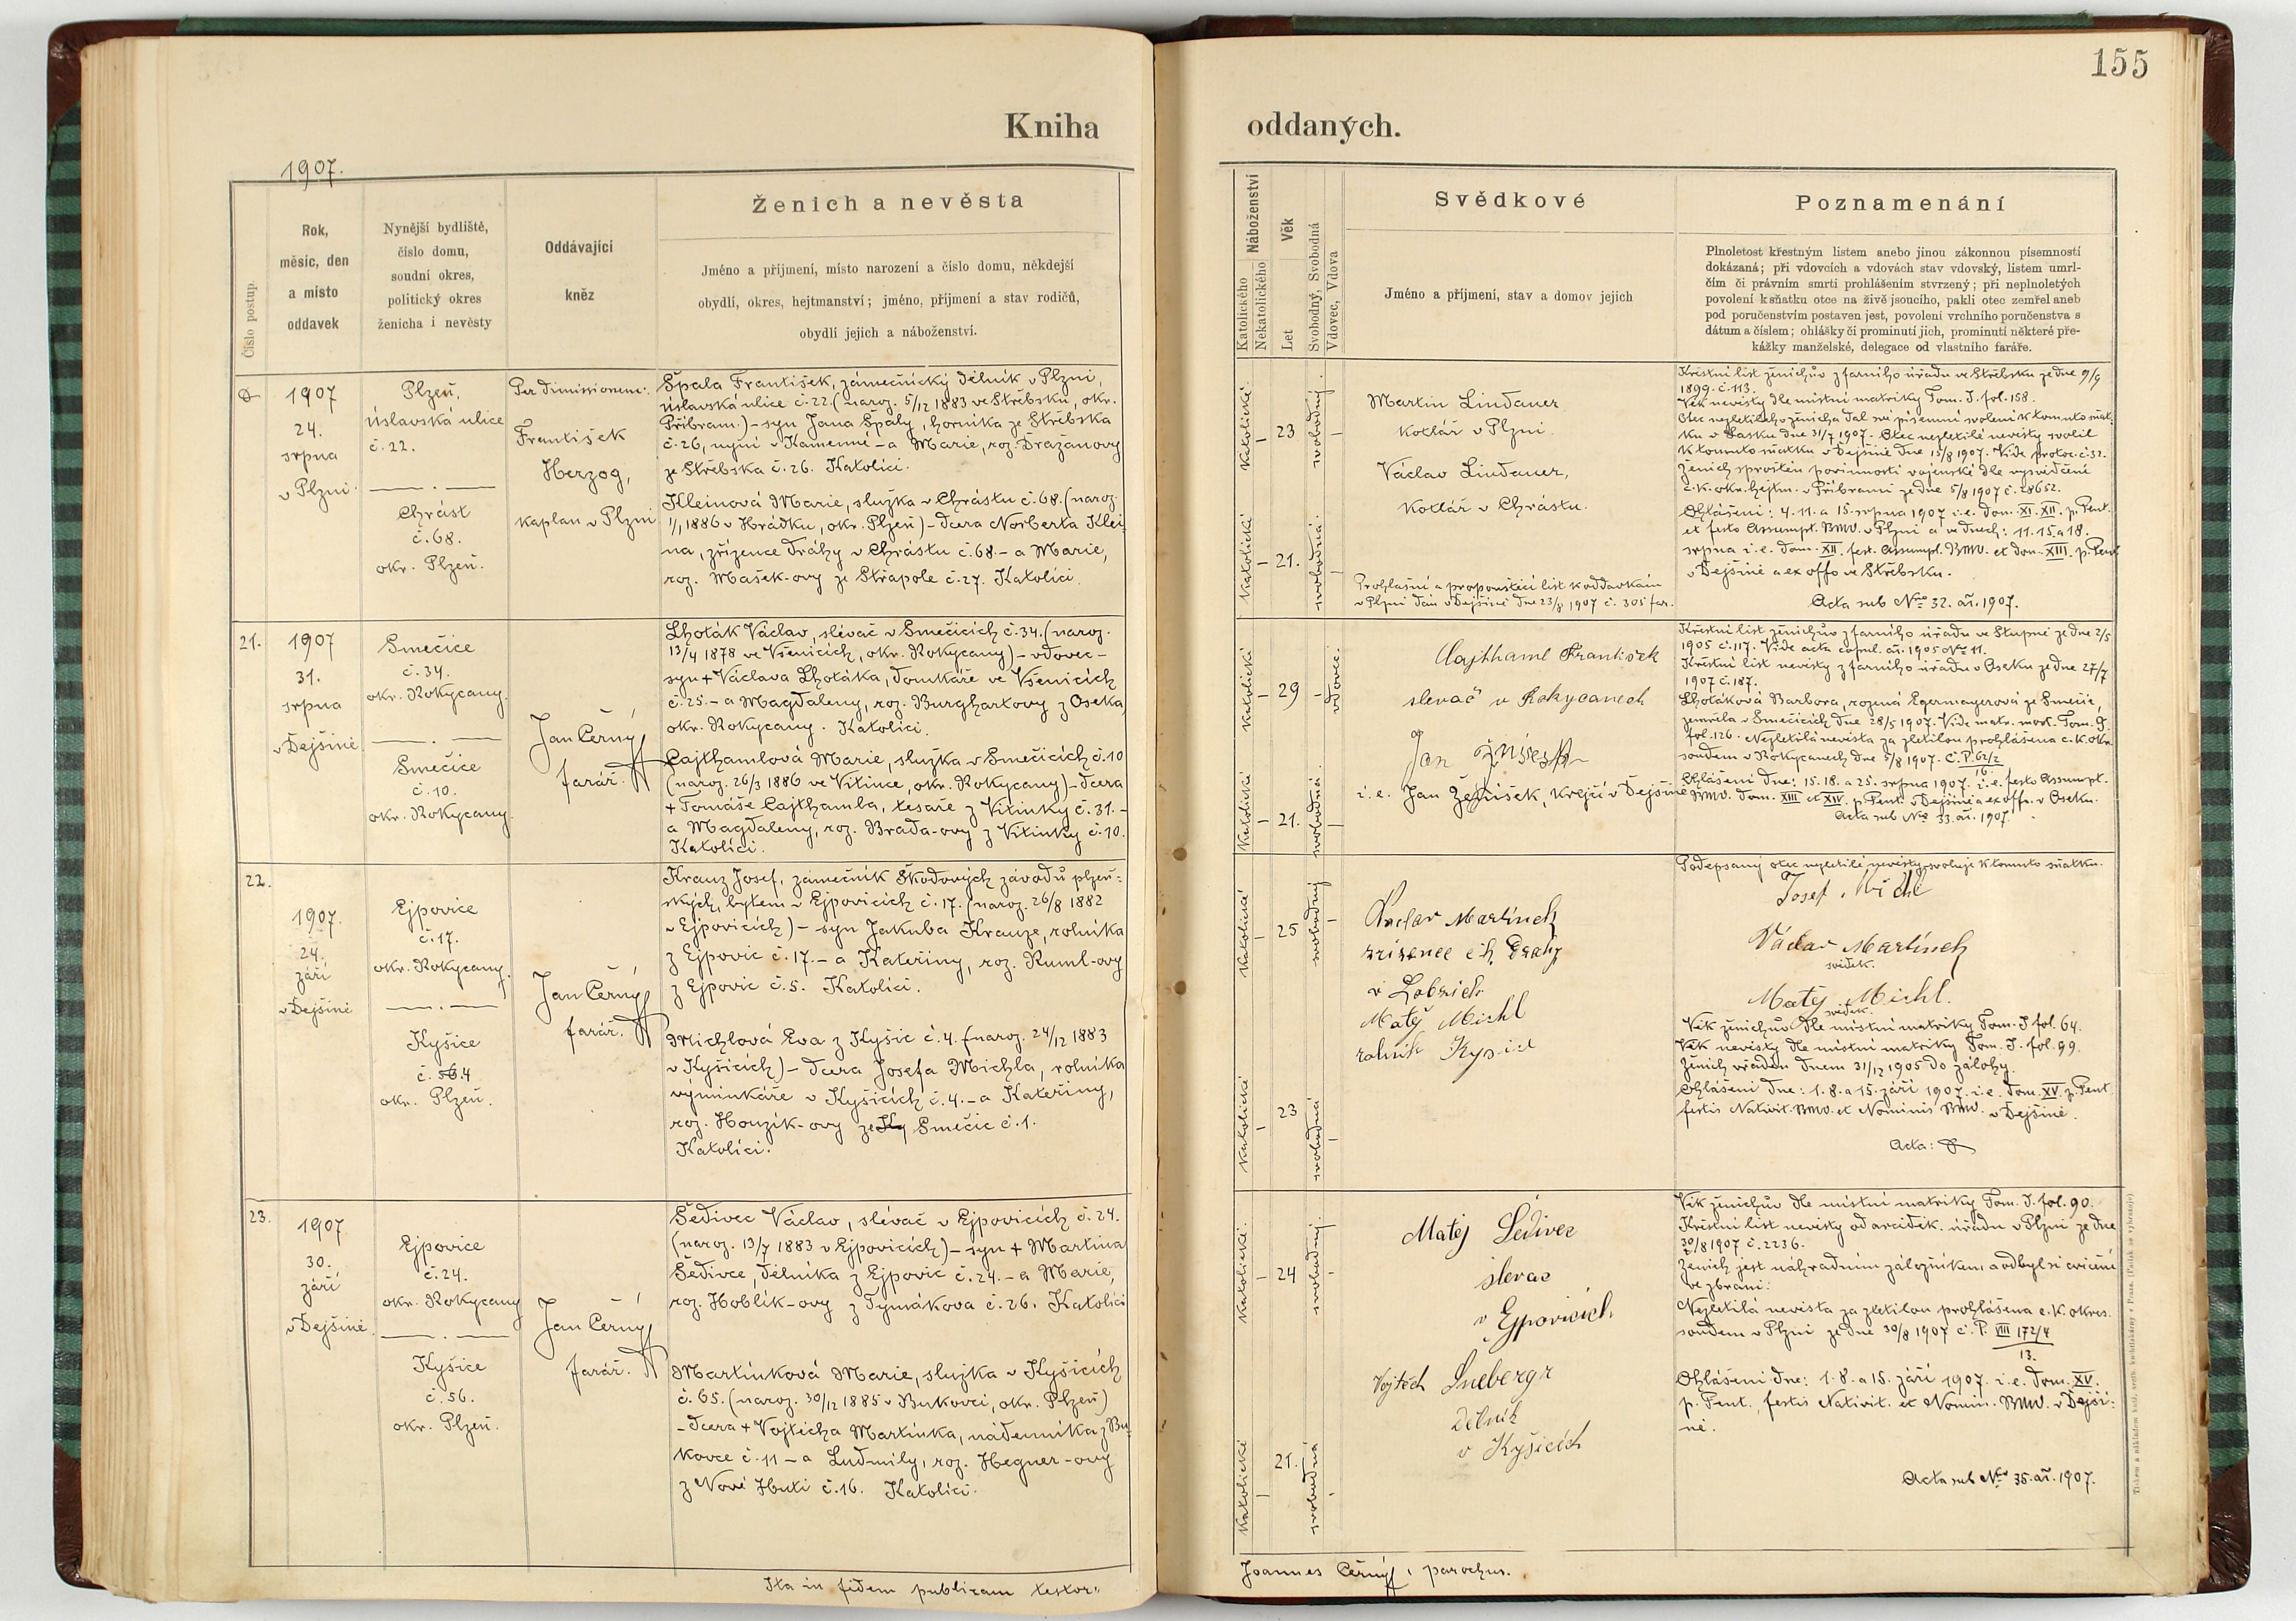 155
Kniha
oddaných.
1907.
Číslo postup.
Rok,
měsíc, den
a místo
oddavek
Nynější bydliště,
číslo domu,
soudní okres,
politický okres
ženicha i nevěsty
Oddávající
kněz
Ženich a nevěsta
Jméno a příjmení, místo narození a číslo domu, někdejší
obydlí, okres, hejtmanství; jméno, příjmení a stav rodičů,
obydlí jejich a náboženství.
Katolického
Nekatolického
Náboženství
Let
Věk
Svobodný, Svobodná
Vdovec, Vdova
Svědkové
Jméno a příjmení, stav a domov jejich
Poznamenání
Plnoletost křestným listem anebo jinou zákonnou písemností
dokázaná; při vdovcích a vdovách stav vdovský, listem umrl-
čím či právním smrti prohlášením stvrzený; při neplnoletých
povolení k sňatku otce na živě jsoucího, pakli otec zemřel aneb
pod poručenstvím postaven jest, povolení vrchního poručenstva s
dátum a číslem; ohlášky či prominutí jich, prominutí některé pře-
kážky manželské, delegace od vlastního faráře.
1907
24.
srpna
v Plzni.
Plzeň,
úslavská ulice
č. 22.
Chrást
č. 68.
okr. Plzeň.
Per dimissionem.
František
Herzog,
kaplan v Plzni
Špala František, zámečnický dělník v Plzni,
úslavská ulice č. 22. (naroz. 5/12 1883 ve Střebsku, okr.
Příbram.) – syn Jana Špaly, horníka ze Střebska
č. 26, nyní v Kamenné – a Marie, roz. Dražanovy
ze Střebska č. 26. Katolíci.
Kleinová Marie, služka v Chrástu č. 68. (naroz.
1/1 1886 v Hrádku, okr. Plzeň) – dcera Norberta Klei-
na, zřízence dráhy v Chrástu č. 68. – a Marie,
roz. Mašek-ovy ze Střapole č. 27. Katolíci.
katolické
23
svobodný.
katolické
21.
svobodná.
Martin Lindauer
kotlář v Plzni.
Václav Lindauer,
kotlář v Chrástu.
Prohlašní a propouštěcí list k oddavkám
v Plzni dán v Dejšině dne 23/8 1907 č. 305 far.
Křestní list ženichův z farního úřadu ve Střebsku ze dne 9/9
1899. č. 113.
Věk nevěsty dle místní matriky Tom. I. fol. 158.
Otec nezletilého ženicha dal své písemní svolení k tomuto sňat-
ku v Lasku dne 31/7 1907. Otec nezletilé nevěsty svolil
k tomuto sňatku v Dejšině dne 15/8 1907. Vide protoc. č. 32.
Ženich sproštěn povinnosti vojenské dle vysvědčení
c. k. okr. hejtm. v Příbrami ze dne 5/8 1907 č. 28652.
Ohlášeni: 4. 11. a 15. srpna 1907 i. e. dom. XI. XII. p. Pent.
et festo Assumpt. BMV. v Plzni a ve dnech: 11. 15. a 18.
srpna i. e. dom. XII. fest. Assumpt. BMV. et dom. XIII. p. Pent
v Dejšině a ex offo ve Střebsku.
Acta sub No 32. añ. 1907.
21.
1907
31.
srpna
v Dejšině
Smečice
č. 34.
okr. Rokycany.
Smečice
č. 10.
okr. Rokycany.
Jan Černý
farář.
Lhoták Václav, slévač v Smečicích č. 34. (naroz.
13/4 1878 ve Všenicích, okr. Rokycany) – vdovec –
syn + Václava Lhotáka, domkáře ve Všenicích
č. 25. – a Magdaleny, roz. Burghartovy z Oseka,
okr. Rokycany. Katolíci.
Cajthamlová Marie, služka v Smečicích č. 10
(naroz. 26/3 1886 ve Vitince, okr. Rokycany) – dcera
+ Tomáše Cajthamla, tesaře z Vitinky č. 31. –
a Magdaleny, roz. Brada-ovy z Vitinky č. 10.
Katolíci.
katolické
29
vdovec.
katolické
21.
svobodná.
Cajthaml František
slevač v Rokycanech
Jan Ženíšek
i. e. Jan Ženíšek, krejčí v Dejšině
Křestní list ženichův z farního úřadu ve Stupně ze dne 2/5
1905 č. 117. Vide acta copul. añ. 1905 No 11.
Křestní list nevěsty z farního úřadu v Oseku ze dne 27/7
1907 č. 187.
Lhotáková Barbora, rozená Egermayerová ze Smečic,
zemřela v Smečicích dne 28/5 1907. Vide matr. mort. Tom. I.
fol. 126. Nezletilá nevěsta za zletilou prohlášena c. k. okr.
soudem v Rokycanech dne 5/8 1907. Č. P. 62/2
16.
Ohlášeni dne: 15. 18. a 25. srpna 1907. i. e. festo Assumpt.
BMV. dom. XIII et XIV. p. Pent. v Dejšině a ex offo. v Oseku.
Acta sub No 33. añ. 1907.
22.
1907.
24.
září
v Dejšině
Ejpovice
č. 17.
okr. Rokycany.
Kyšice
č. 56 4
okr. Plzeň.
Jan Černý
farář.
Kranz Josef, zámečník Škodových závodů plzeň-
ských, bytem v Ejpovicích č. 17. (naroz. 26/8 1882
v Ejpovicích) – syn Jakuba Kranze, rolníka
z Ejpovic č. 17. – a Kateřiny, roz. Ruml-ovy
z Ejpovic č. 5. Katolíci.
Michlová Eva z Kyšic č. 4. (naroz. 24/12 1883
v Kyšicích) – dcera Josefa Michla, rolníka
výminkáře v Kyšicích č. 4. – a Kateřiny,
roz. Houzík-ovy ze Ky Smečic č. 1.
Katolíci.
katolické
25
svobodný
katolické
23
svobodná
Václav Martínek
zrisenec čh. Drahy
v Lobzich
Matěj Michl
rolnik Kysice
Podepsaný otec nezletilé nevěsty svoluje k tomuto sňatku.
Josef Michl
Václav Martínek
svědek.
Matěj Michl.
svědek.
Věk ženichův dle místní matriky Tom. I fol. 64.
Věk nevěsty dle místní matriky Tom. I. fol. 99.
Ženich vřaděn dnem 31/12 1905 do zálohy.
Ohlášeni dne: 1. 8. a 15. září 1907. i. e. dom. XV. p. Pent
festis Nativit. BMV. et Nominis BMV. v Dejšině.
Acta:
23.
1907
30.
září
v Dejšině.
Ejpovice
č. 24.
okr. Rokycany
Kyšice
č. 56.
okr. Plzeň.
Jan Černý
farář.
Šedivec Václav, slévač v Ejpovicích č. 24.
(naroz. 13/7 1883 v Ejpovicích) – syn + Martina
Šedivce, dělníka z Ejpovic č. 24. – a Marie,
roz. Hoblík-ovy z Tymákova č. 26. Katolíci
Martínková Marie, služka v Kyšicích
č. 65. (naroz. 30/12 1885 v Bukovci, okr. Plzeň)
– dcera + Vojtěcha Martínka, nádenníka z Bu-
kovce č. 11 – a Ludmily, roz. Hegner-ovy
z Nové Huti č. 16. Katolíci.
katolické.
24
svobodný.
katolické
21.
svobodná
Matěj Šedivec
slevac
v Ejpovicích
Vojtěch Šneberger
dělník
v Kyšicích
Věk ženichův dle místní matriky Tom. I. fol. 90.
Křestní list nevěsty od arciděk. úřadu v Plzni ze dne
30/8 1907 č. 2236.
Ženich jest náhradním záložníkem a odbyl si cvičení
ve zbrani.
Nezletilá nevěsta za zletilou prohlášena c. k. okres.
soudem v Plzni ze dne 30/8 1907 č. P. VIII 172/4
13.
Ohlášeni dne: 1. 8. a 15. září 1907. i. e. dom. XV.
p. Pent., festis Nativit. et Nomin. BMV. v Dejši-
ně.
Acta sub No 35. añ. 1907.
Ita in fidem publicam testor:
Joannes Černý, parochus.